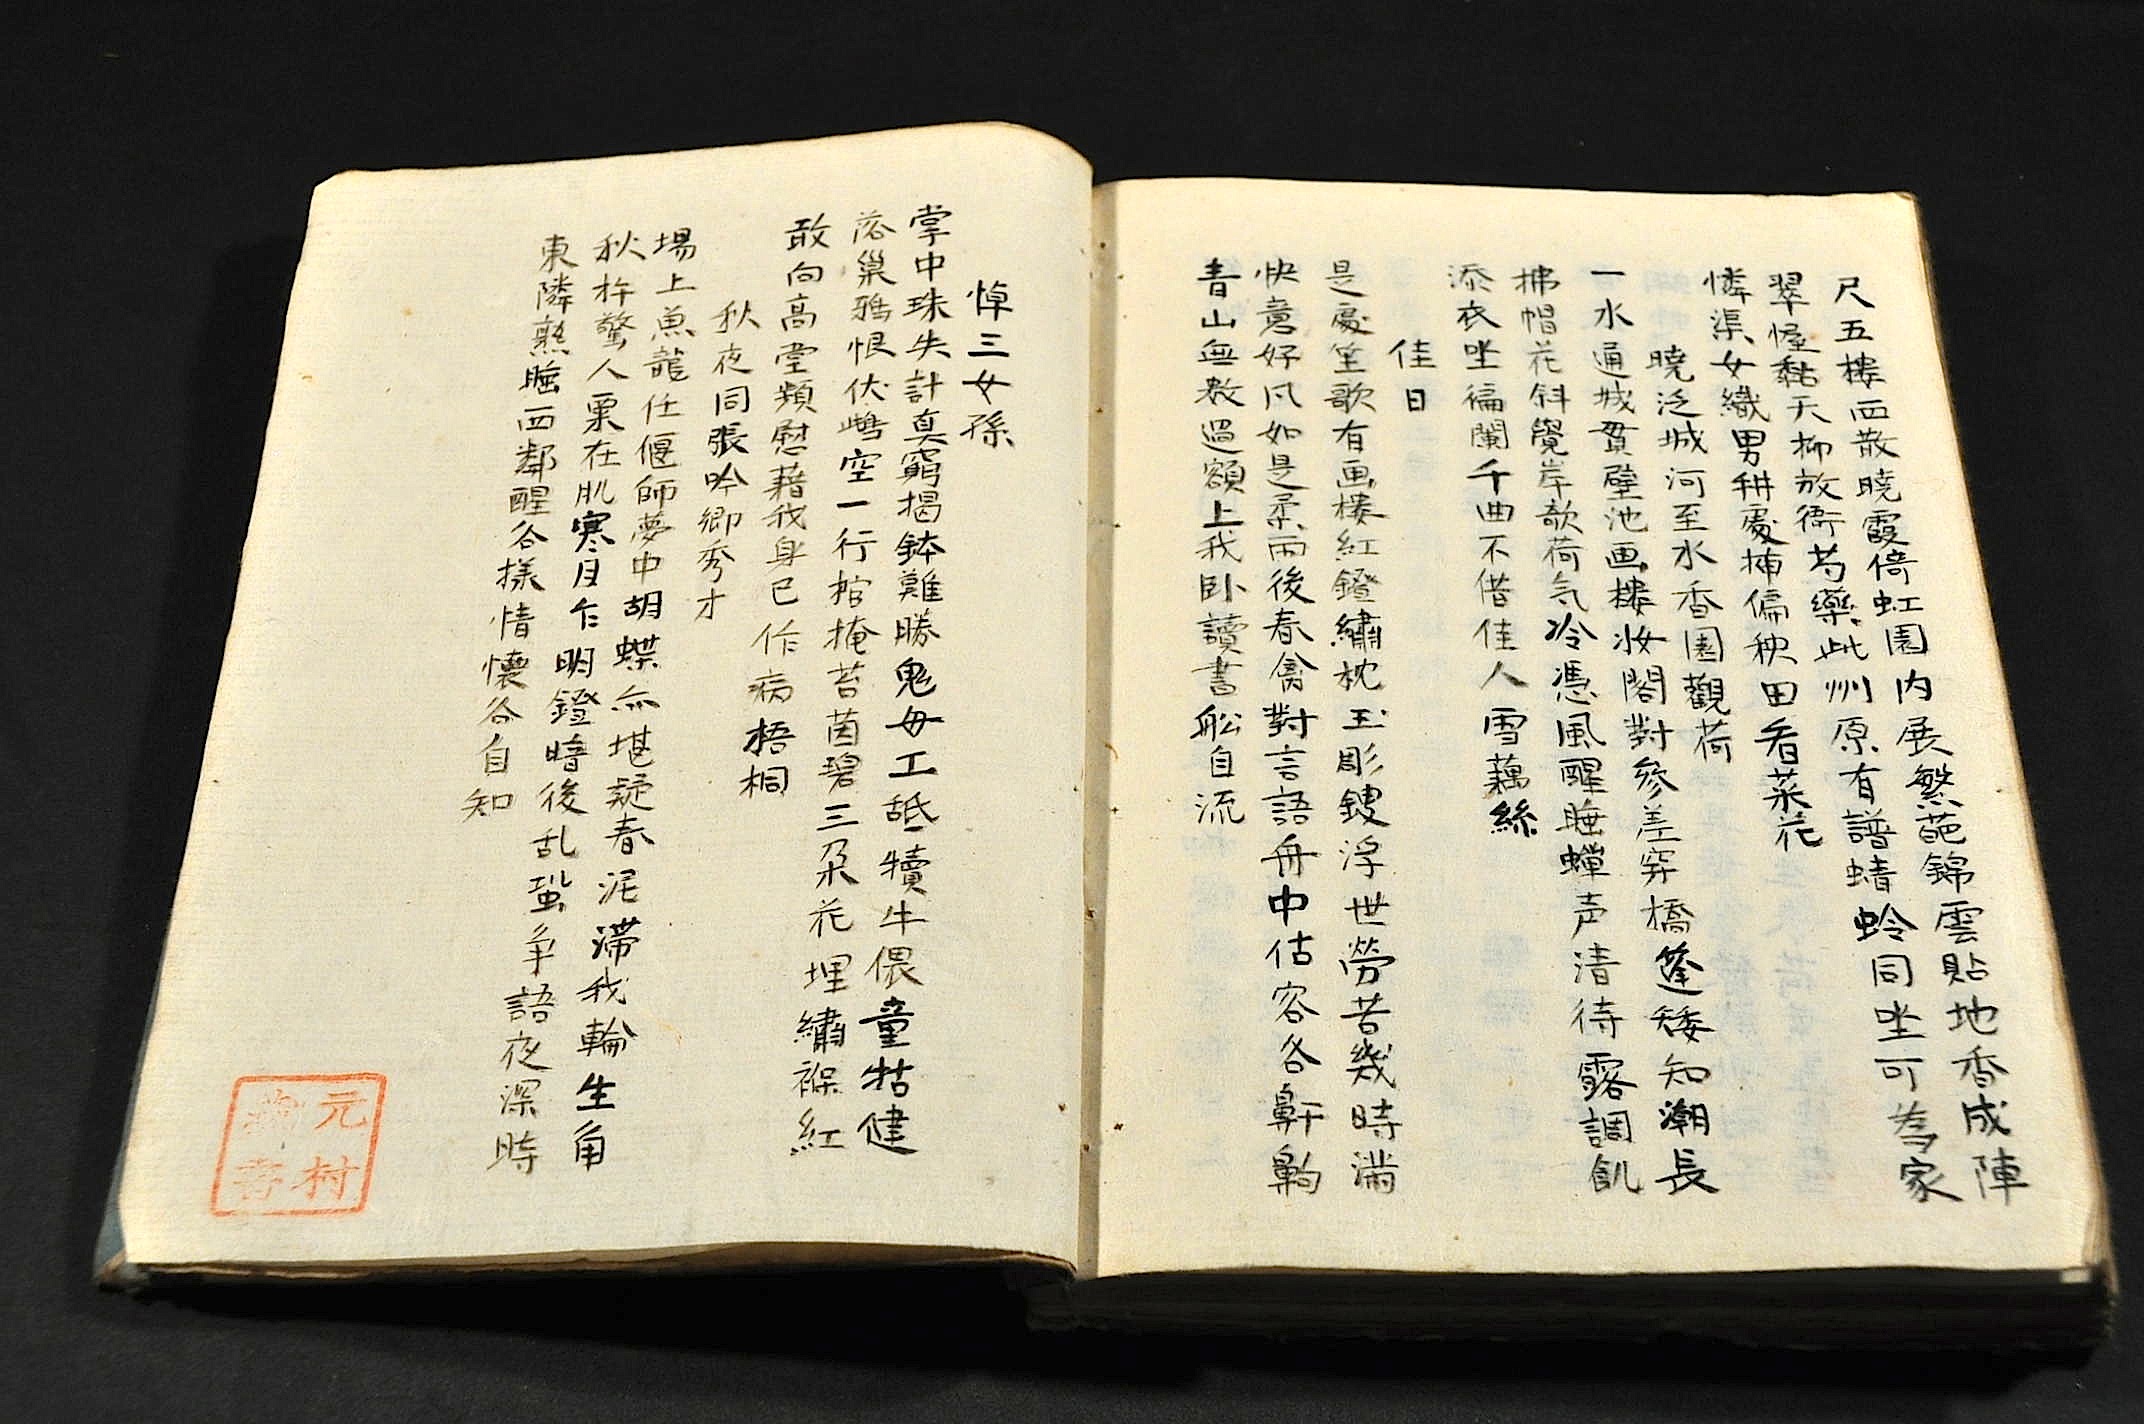 尺五樓西散曉霞倚虹園内展繁葩錦雲貼地香成陣
翠幄黏天柳放衙芍藥此州原有譜蜻蛉同坐可為家
憐渠女織男耕處插徧秧田看菜花
曉泛城河至水香園觀荷
一水通城貫壁池画樓妝閣對參差穿橋篷矮知潮長
拂帽花斜覺岸欹荷气冷憑風醒睡蟬声清待露調飢
添衣坐徧闌千曲不借佳人雪藕絲
佳日
是處笙歌有画樓紅鐙繡枕玉彫鎪浮世勞苦幾時滿
快意好风如是柔雨後春禽對言語舟中估客各鼾齁
青山無数過額上我卧讀書船自流
悼三女孫
掌中珠失計真窮揭鉢難勝鬼母工舐犢牛偎童牯健
落巢鴉恨伏雌空一行棺掩苔茵碧三朶花埋繡褓紅
敢向高堂頻慰藉我身已作病梧桐
秋夜同張吟卿秀才
場上魚龍任偃師夢中胡蝶亦堪疑春泥滯我輪生角
秋杵驚人粟在肌寒月乍明鐙暗後乱蛩争語夜深時
東隣熟睡西鄰醒各樣情懷各自知
元村